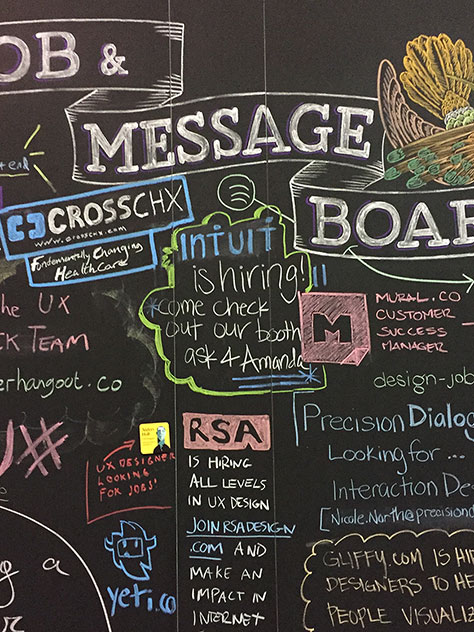 OB &
MESSAGE
BOA
CROSSCHX
www.crosschx.com
Fundamentally Changing
HealthCare
INTUIT
is hiring!
come check
out our booth
ask 4 Amanda
M
MURAL.CO
CUSTOMER
SUCCESS
MANAGER
he UX
CK TEAM
erhangout.co
UX DESIGNER
LOOKING
FOR JOBS!
yeti.co
RSA
IS HIRING
ALL LEVELS
IN UX DESIGN
JOINRSADESIGN
.COM AND
MAKE AN
IMPACT IN
INTERNET
design-job
Precision Dialog
Looking for ...
Interaction De
[Nicole.North@precisiond
GLIFFY.COM IS HI
DESIGNERS TO HE
PEOPLE VISUALIZ